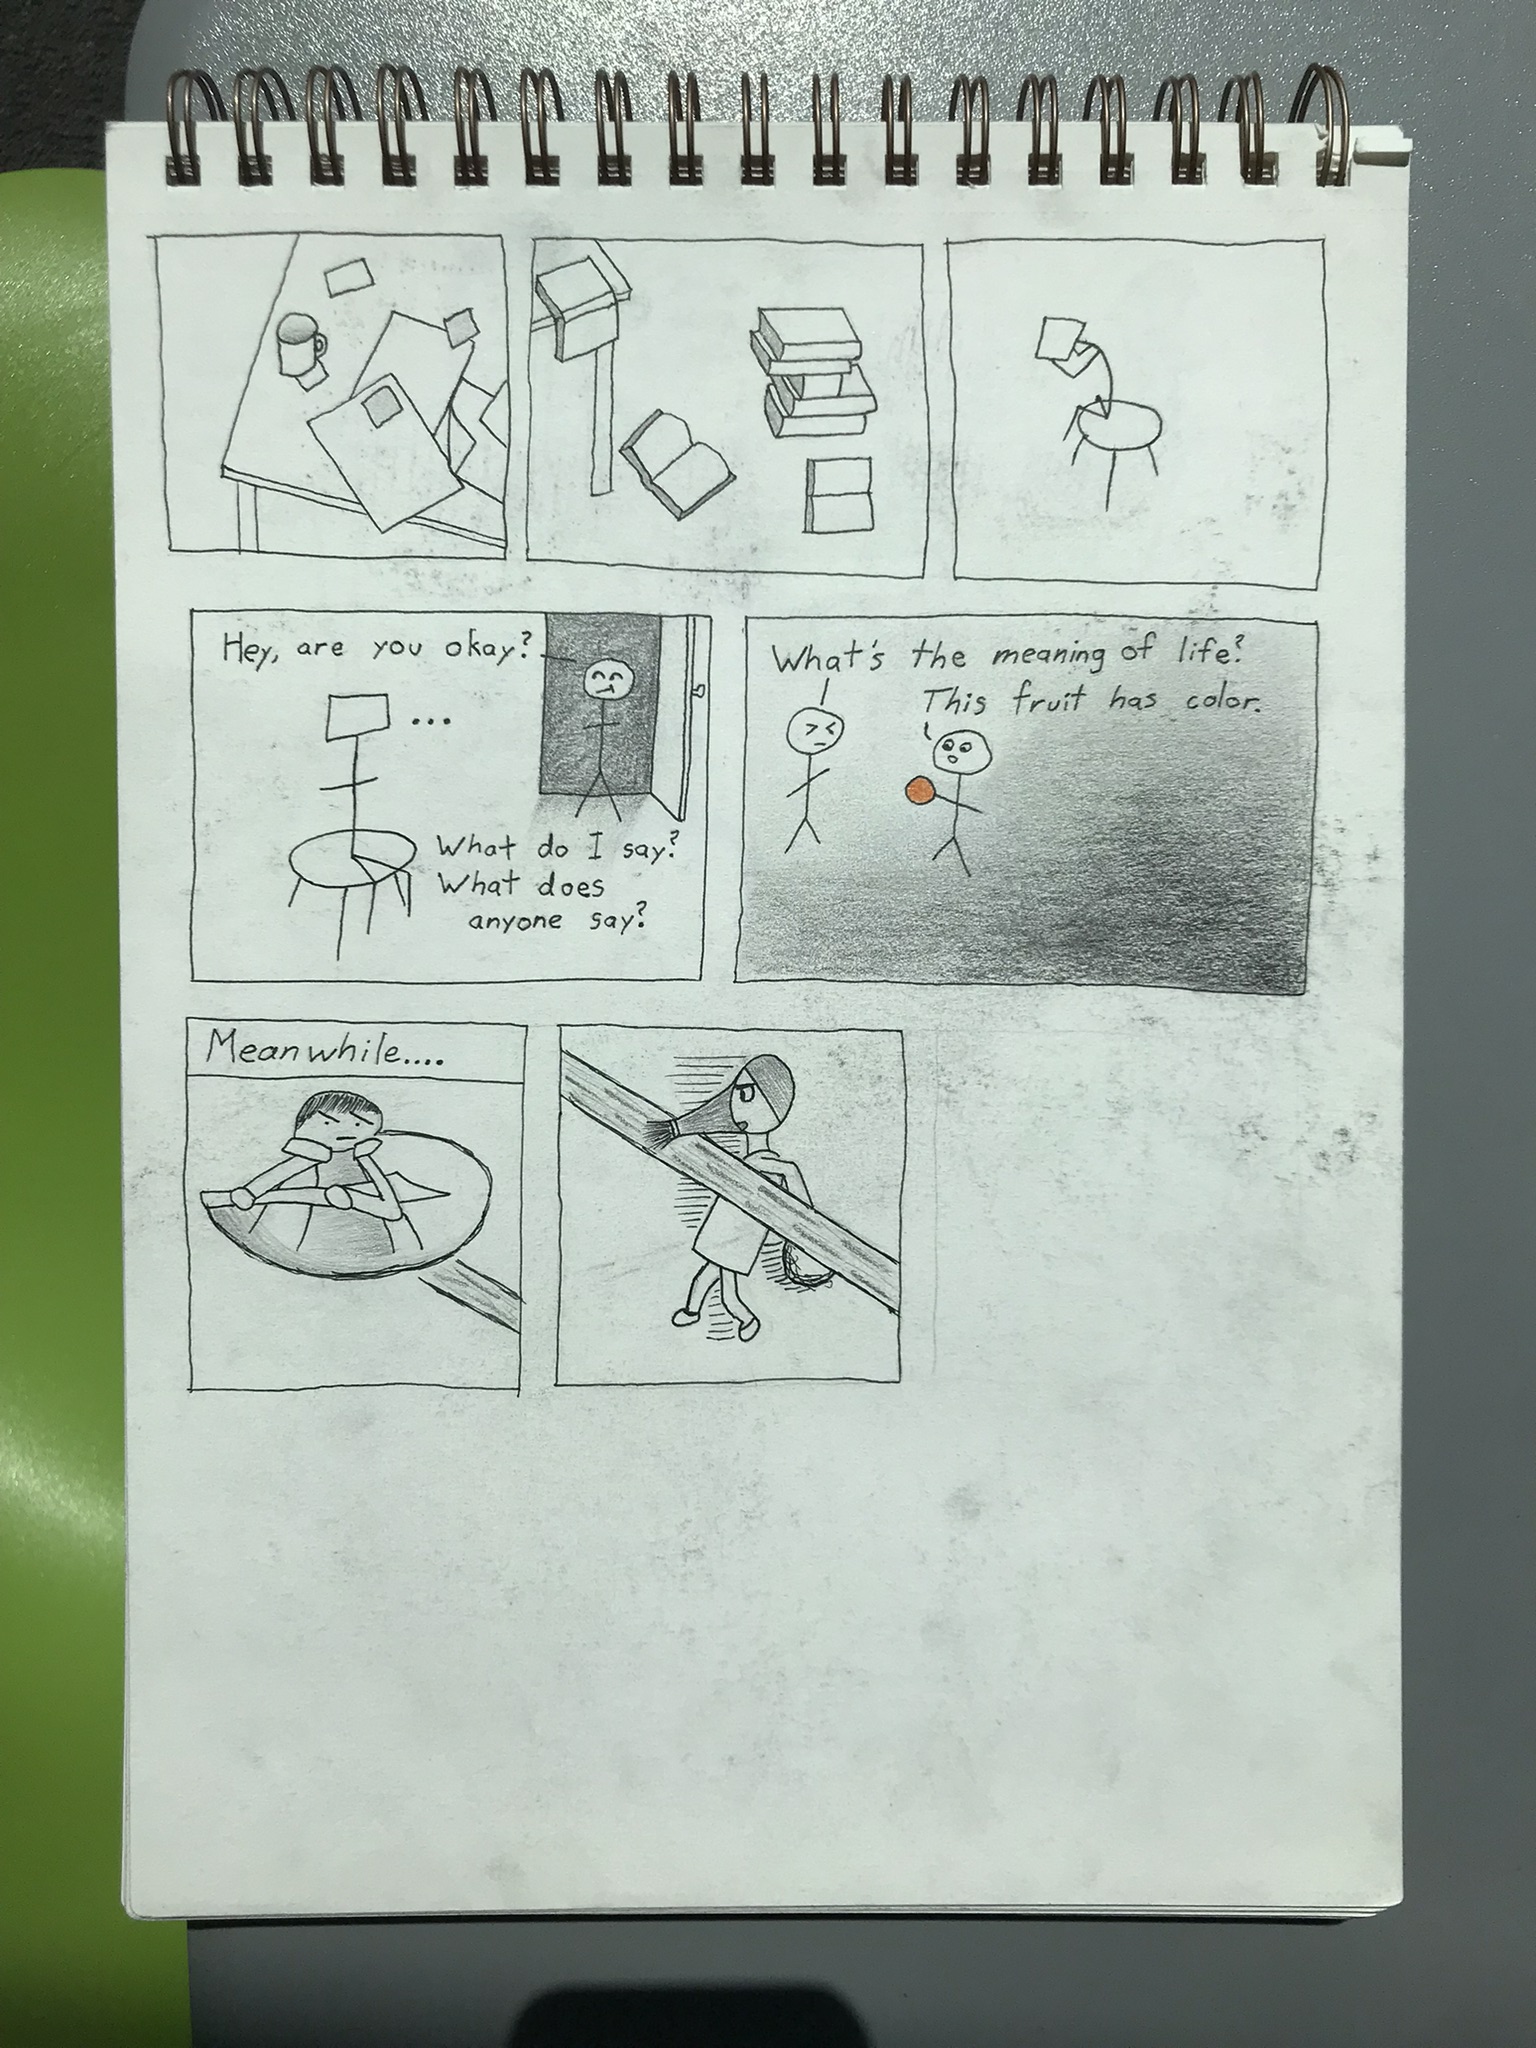 Hey, are you okay?
...
What do I say?
What does
anyone say?
What's the meaning of life?
This fruit has color.
Meanwhile....